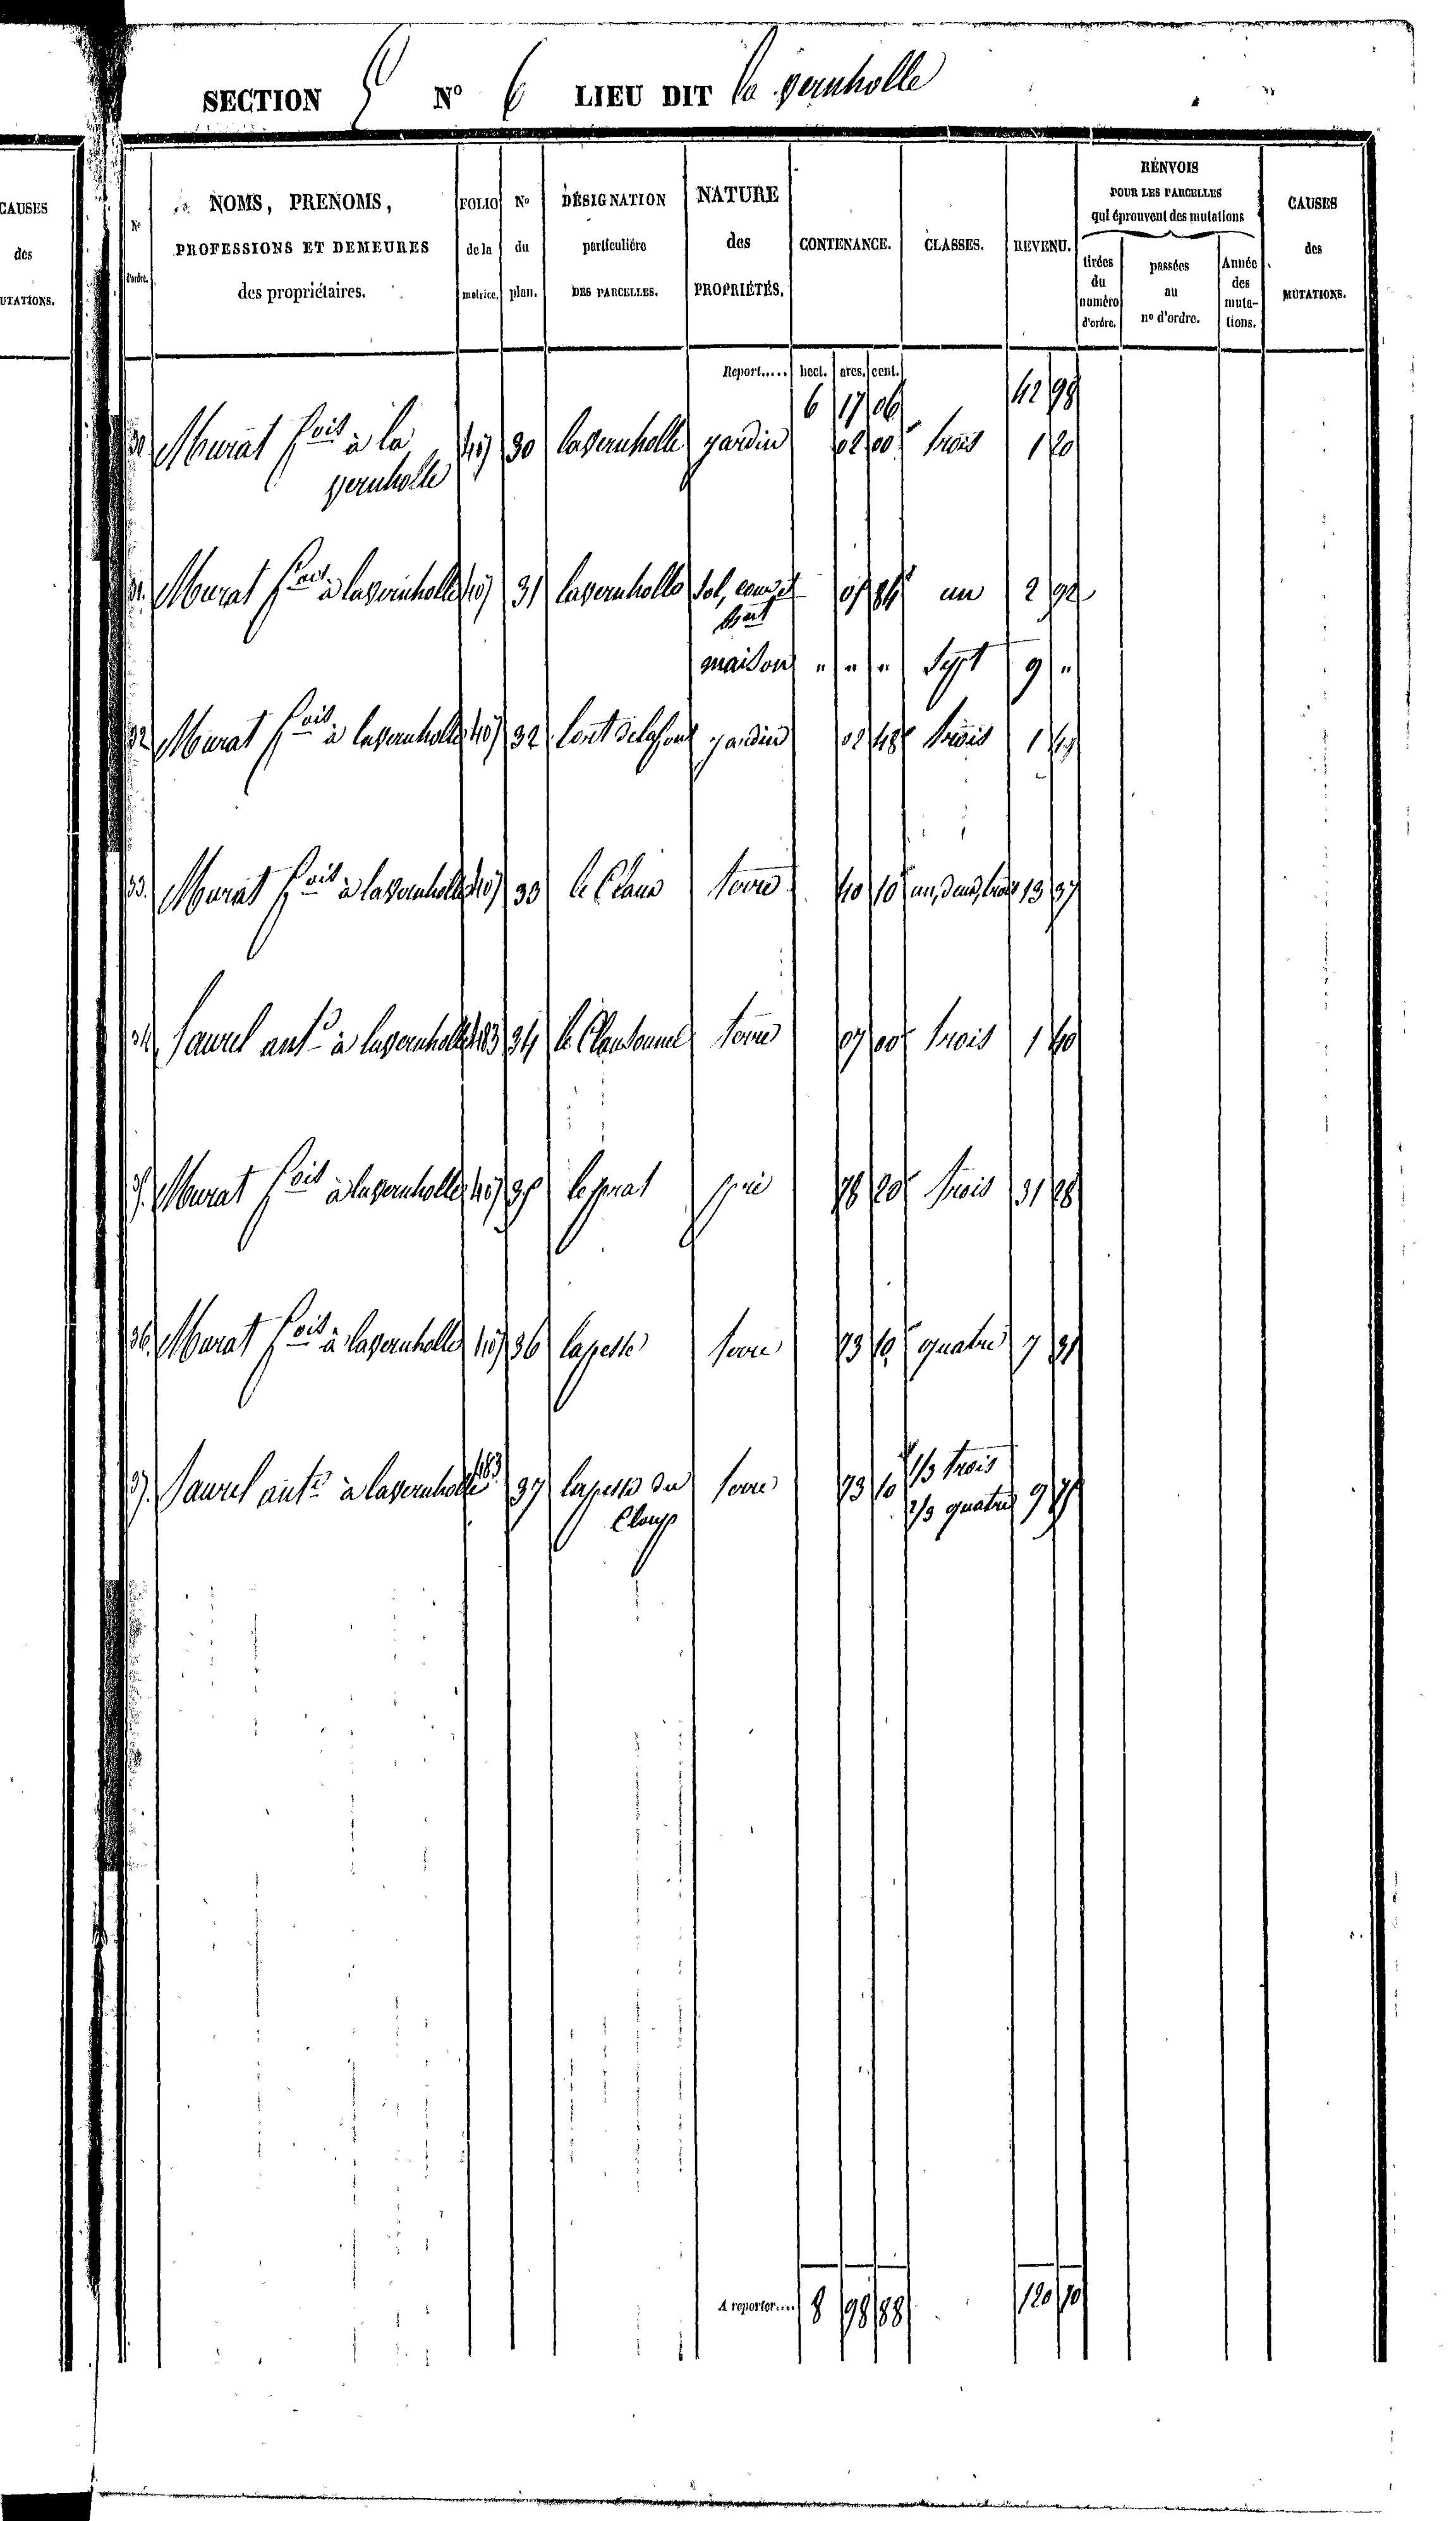 CAUSES
des
UTATIONS.
SECTION E N° 6 LIEU DIT la vernholle
N° d'ordre.
NOMS, PRENOMS,
PROFESSIONS ET DEMEURES
des propriétaires.
FOLIO de la matrice.
N° du plan.
DÉSIGNATION
particulière
DES PARCELLES.
NATURE
des
PROPRIÉTÉS.
CONTENANCE.
CLASSES.
REVENU.
RENVOIS
POUR LES PARCELLES
qui éprouvent des mutations
tirées du numéro d'ordre.
passées au n° d'ordre.
Année des mutations.
CAUSES
des
MUTATIONS.
Report..... hect. ares. cent.
6 17 06 42 98
30 Murat fois à la 407 30 lavernholle jardin 02 00 trois 1 20
vernholle
31. Murat fois à lavernholle 407 31 lavernholle sol, cour et 05 84 un 2 92
maison " " " Sept 9 "
32 Murat fois à lavernholle 407 32 l'ort de lafont jardin 02 48 trois 1 49
33. Murat fois à lavernholle 407 33 le Claus terre 40 10 un, deux, trois 13 37
34 Saurel ant.e à lavernholle 483 34 le Clausounel terre 07 00 trois 1 40
35. Murat fois à lavernholle 407 35 le prat pré 78 20 trois 31 28
36. Murat fois à lavernholle 407 36 lapesse terre 73 10 quatre 7 31
37. Saurel ant.e à lavernholle 483 37 lapesse du terre 73 10 1/3 trois
Cloup 2/3 quatre 9 75
A reporter.... 8 98 88 120 70